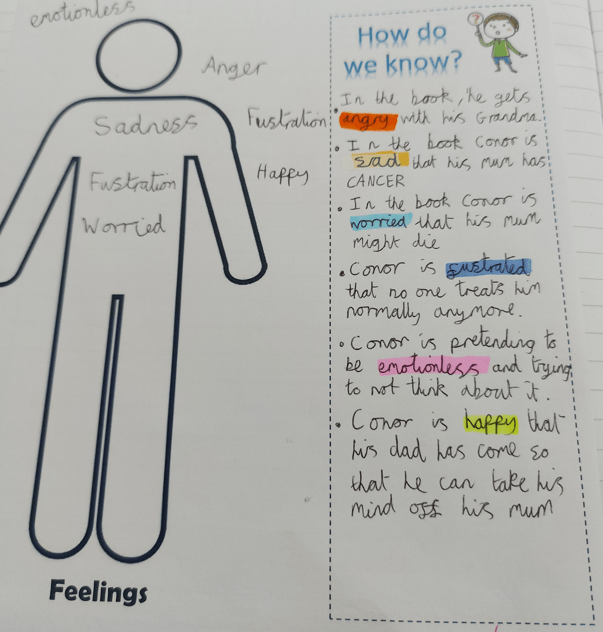 emotionless
Anger
Sadness
Fustration
Happy
Fustration
Worried
Feelings
How do
we know?
In the book, he gets
• angry with his Grandma.
• In the book Conor is
sad that his mum has
CANCER
• In the book Conor is
worried that his mum
might die
• Conor is fustrated
that no one treats him
normally anymore.
• Conor is pretending to
be emotionless and trying
to not think about it.
• Conor is happy that
his dad has come so
that he can take his
mind off his mum